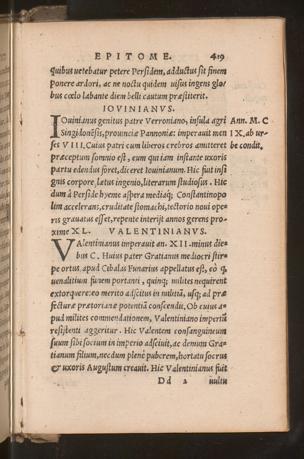 EPITOME. 419
quibus uetebatur petere Persidem, adductus sit finem
ponere ardori, ac ne noctu quidem uisus ingens glo⸗
bus cœlo labante diem belli cautum præstiterit.
IOVINIANVS.
IOuinianus genitus patre Verroniano, insula agri Ann. M. C
Singidonẽsis, prouinciæ Pannoniæ: imperauit men IX. ab ur⸗
ses VIII. Cuius patri cum liberos crebros amitteret be condit,
præceptum somnio est, eum qui iam instante uxoris
partu edendus foret, diceret Iouinianum. Hic fuit insi
gnis corpore, lætus ingenio, literarum studiosus. Hic
dum à Perside hyeme aspera mediaq́; Constantinopo
lim accelerat, cruditate stomachi, tectorio noui ope⸗
ris grauatus esset, repente interijt annos gerens pro⸗
xime XL. VALENTINIANVS.
VAlentinianus imperauit an. XII. minus die⸗
bus C. Huius pater Gratianus mediocri stir
pe ortus apud Cibalas Funarius appellatus est, eò q̀,
uenalitium funem portanti, quinq; milites nequirent
extorquere: eo merito adscitus in militiã, usq; ad præ
fecturæ prætorianæ potentiã conscendit. Ob cuius a⸗
pud milites commendationem, Valentiniano imperiũ
resistenti aggeritur. Hic Valentem consanguineum
suum sibi socium in imperio adsciuit, ac demum Gra⸗
tianum filium, necdum plenè puberem, hortatu socrus
& uxoris Augustum creauit. Hic Valentinianus fuit
Dd 2 uultu